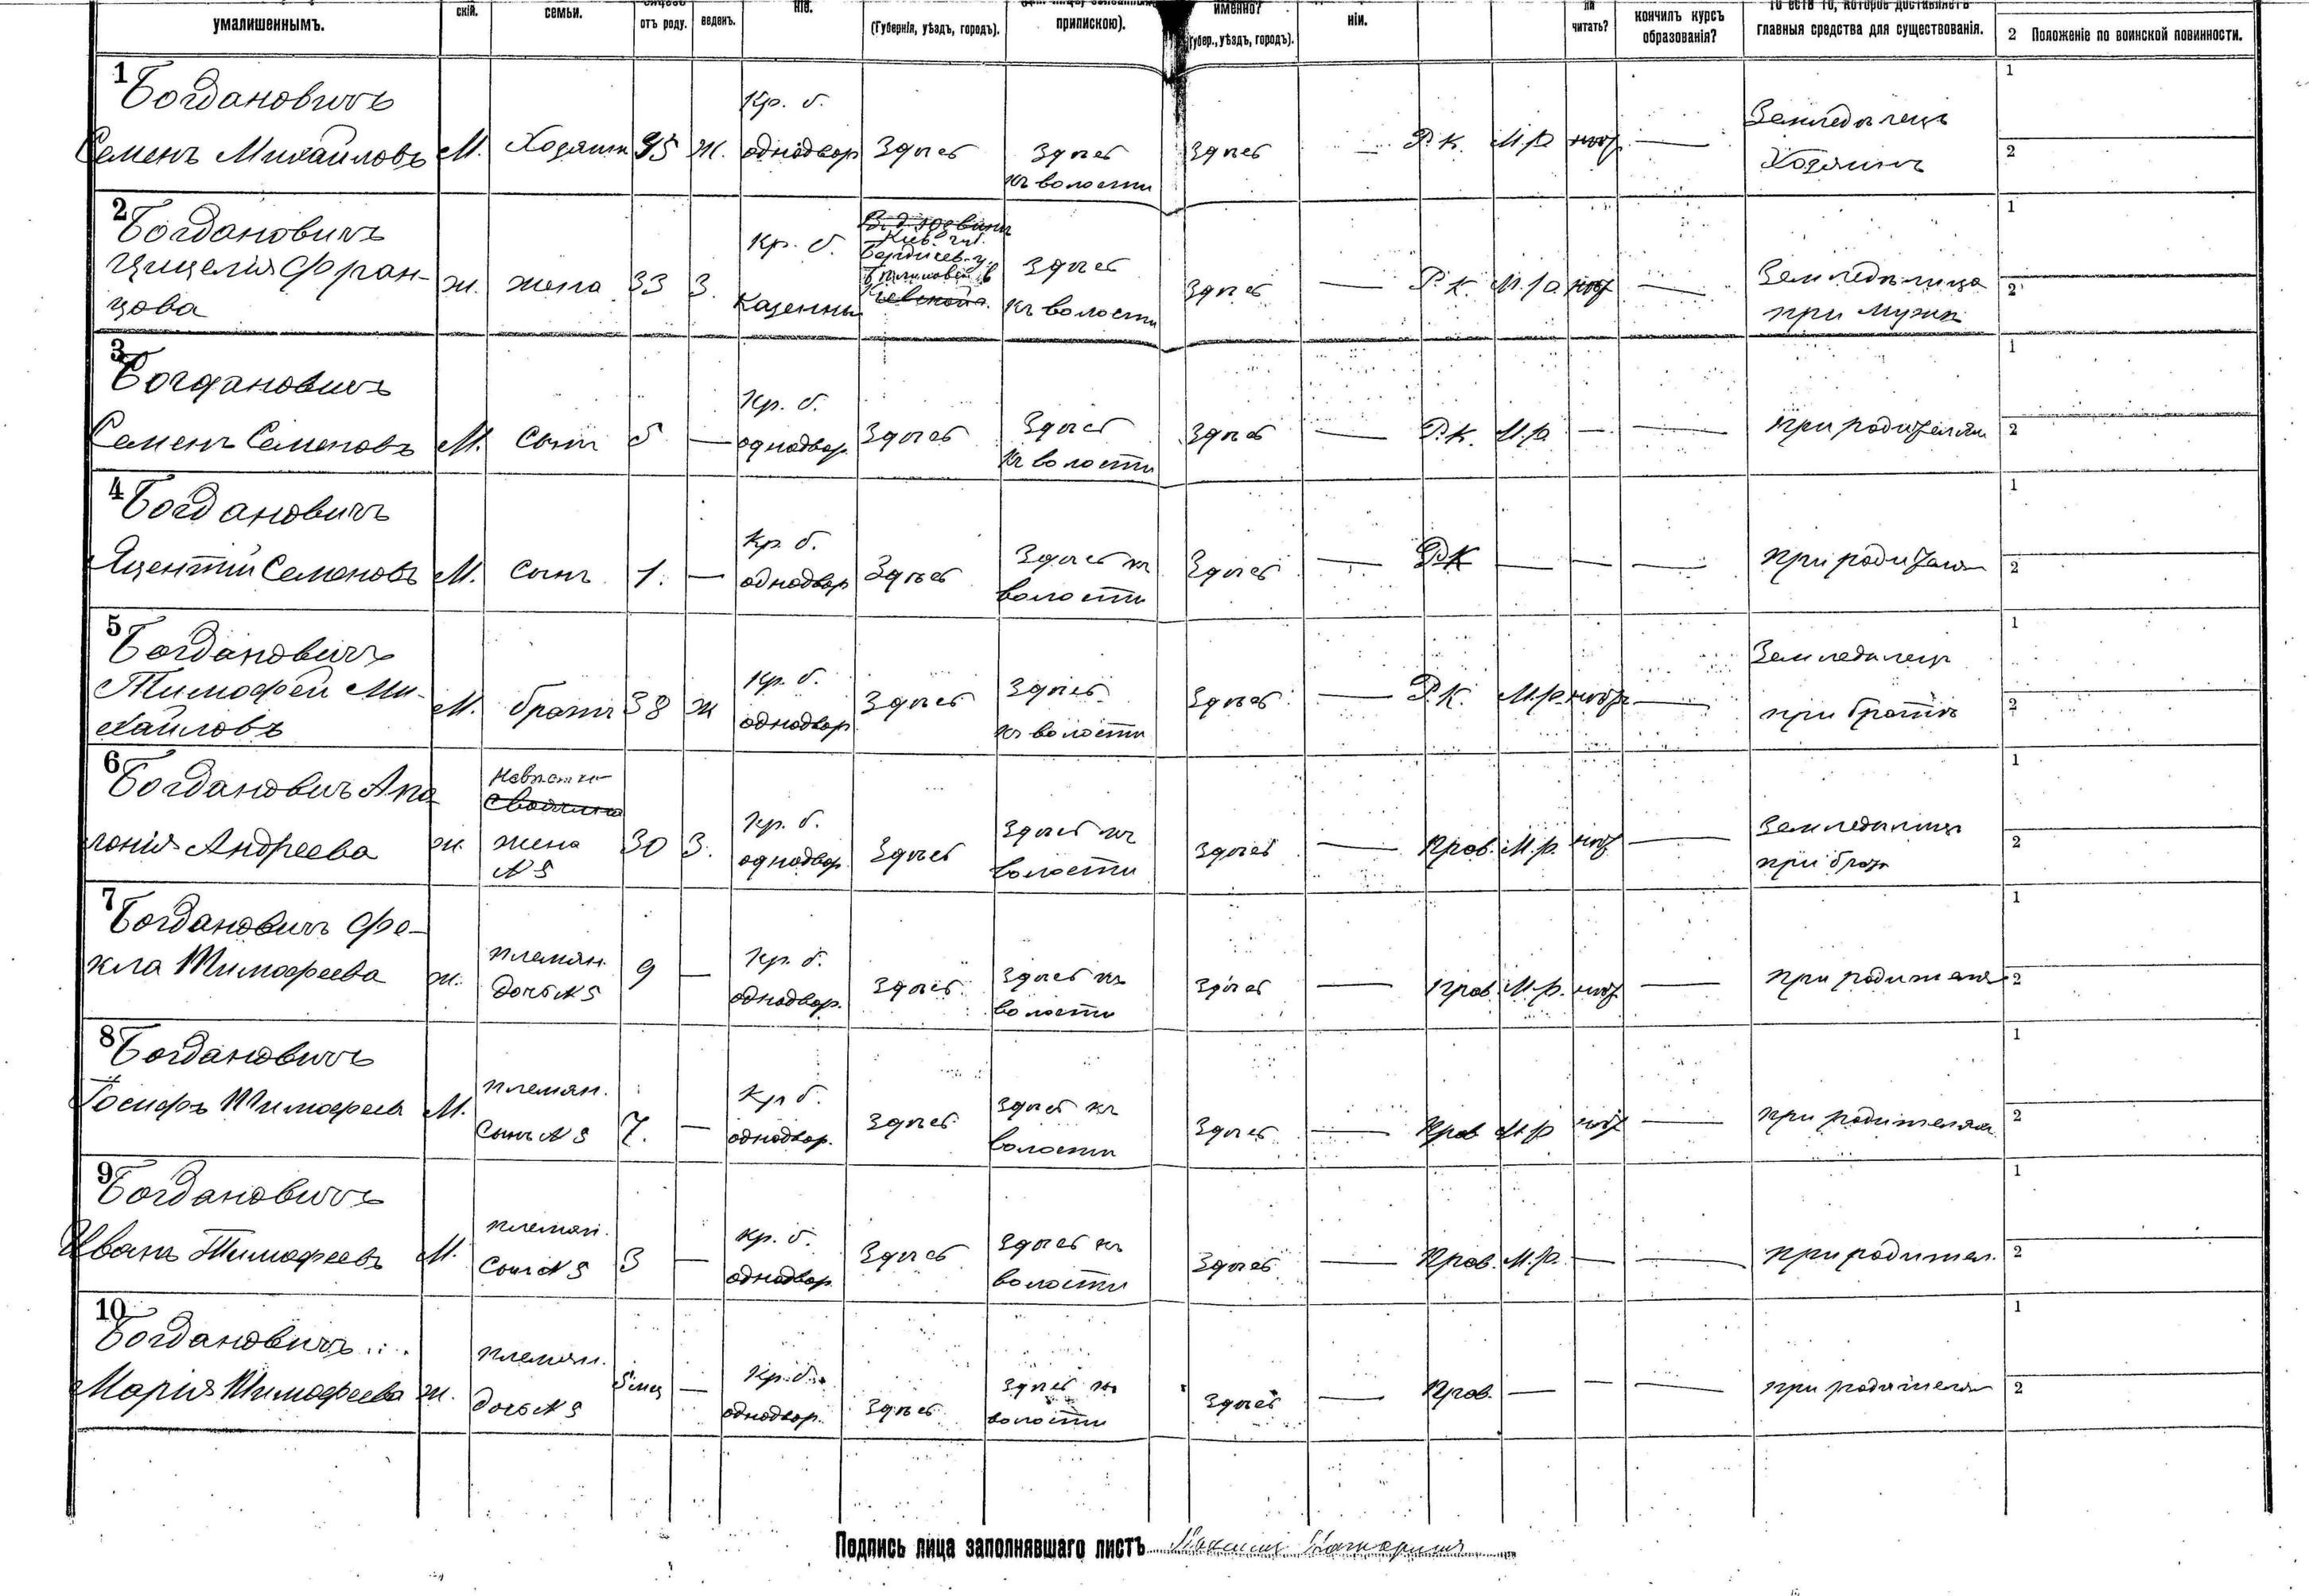 умалишеннымъ. скій. семьи. отъ роду. веденъ. ніе. (Губернія, уѣздъ, городъ). припискою). именно? губер., уѣздъ, городъ). ніи. ли читать? кончилъ курсъ образованія? то есть то, которое доставляетъ главныя средства для существованія. 2 Положеніе по воинской повинности.
1 Богдановичъ
Семенъ Михайловъ М. Хозяин 35 Ж. Кр. б. однодвор Здѣсь Здѣсь къ волости Здѣсь — Р. К. М.р. нѣт — Земледѣлецъ Хозяинъ 1 2
2 Богдановичъ
Цицелія Фран-
цова ж. жена 33 З. Кр. б. Казенны Кіев. губ. Бердичев. у. Здѣсь къ волости Здѣсь — Р. К. М.р. нѣт — Земледѣлица при мужѣ 1 2
3 Богдановичъ
Семенъ Семеновъ М. Сынъ 5 — Кр. б. однодвор Здѣсь Здѣсь къ волости Здѣсь — Р.К. М.р. — — при родителям 1 2
4 Богдановичъ
Яцентій Семеновъ М. Сынъ 1. — Кр. б. однодвор Здѣсь Здѣсь къ волости Здѣсь — Р.К — — — при родителя 1 2
5 Богдановичъ
Тимофей Ми-
хайловъ М. братъ 38 Ж Кр. б. однодвор Здѣсь Здѣсь къ волости Здѣсь — Р.К. М.р. нѣт — Земледѣлецъ при братѣ 1 2
6 Богдановичъ Апо
лонія Андреева ж. Невѣстка жена N 5 30 З. Кр. б. однодвор. Здѣсь Здѣсь къ волости Здѣсь — Прав. М.р. нѣт — Земледѣлица при брат 1 2
7 Богдановичъ Фе-
кла Тимофеева ж. племян. дочь N 5 9 — Кр. б. однодвор. Здѣсь Здѣсь къ волости Здѣсь — Прав. М.р. нѣт — при родителя 1 2
8 Богдановичъ
Іосифъ Тимофеев М. племян. Сынъ N 5 7. — Кр б. однодвор. Здѣсь Здѣсь къ волости Здѣсь — Прав М.р нѣт — при родителям 1 2
9 Богдановичъ
Иванъ Тимофеевъ М. племян. Сынъ N 5 3 — Кр. б. однодвор Здѣсь Здѣсь къ волости Здѣсь — Прав. М.р. — — при родител. 1 2
10 Богдановичъ
Марія Тимофеева ж. племян. дочь N 5 5 мц — Кр. б. однодвор. Здѣсь Здѣсь къ волости Здѣсь — Прав. — — — при родителя 1 2
Подпись лица заполнявшаго листъ